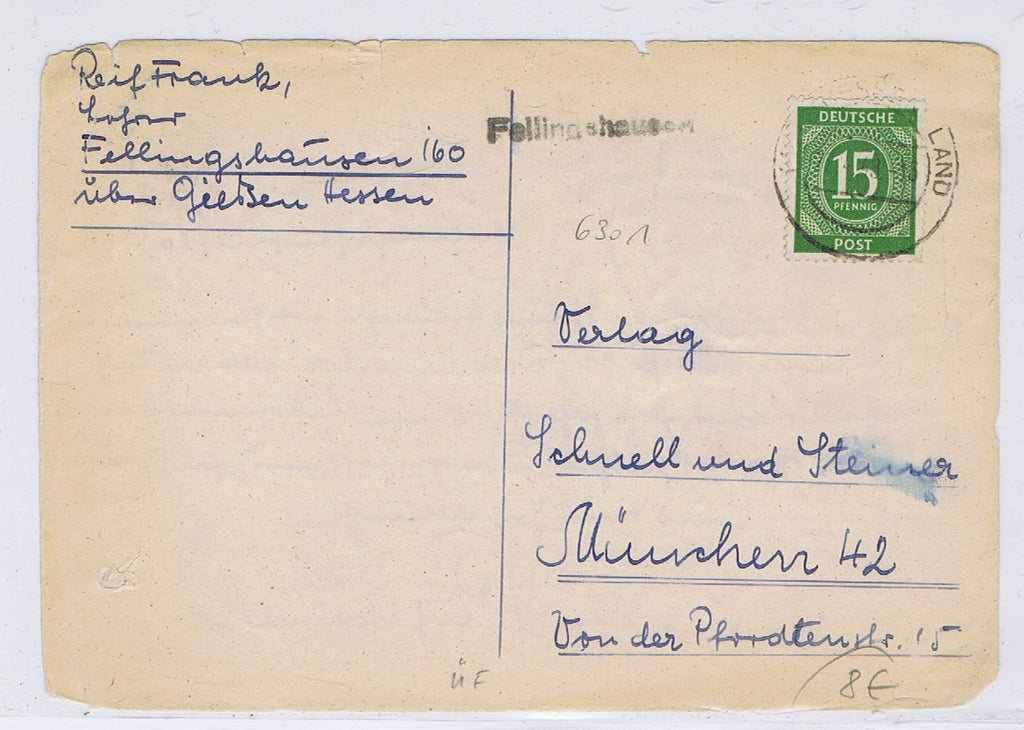 Reif Frank,
Lehrer
Fellingshausen 160
über Gießen Hessen
Fellingshausen
DEUTSCHE
15
PFENNIG
POST
LAND
6301
Verlag
Schnell und Steiner
München 42
Von der Pfordtenstr. 15
ÜF
8€